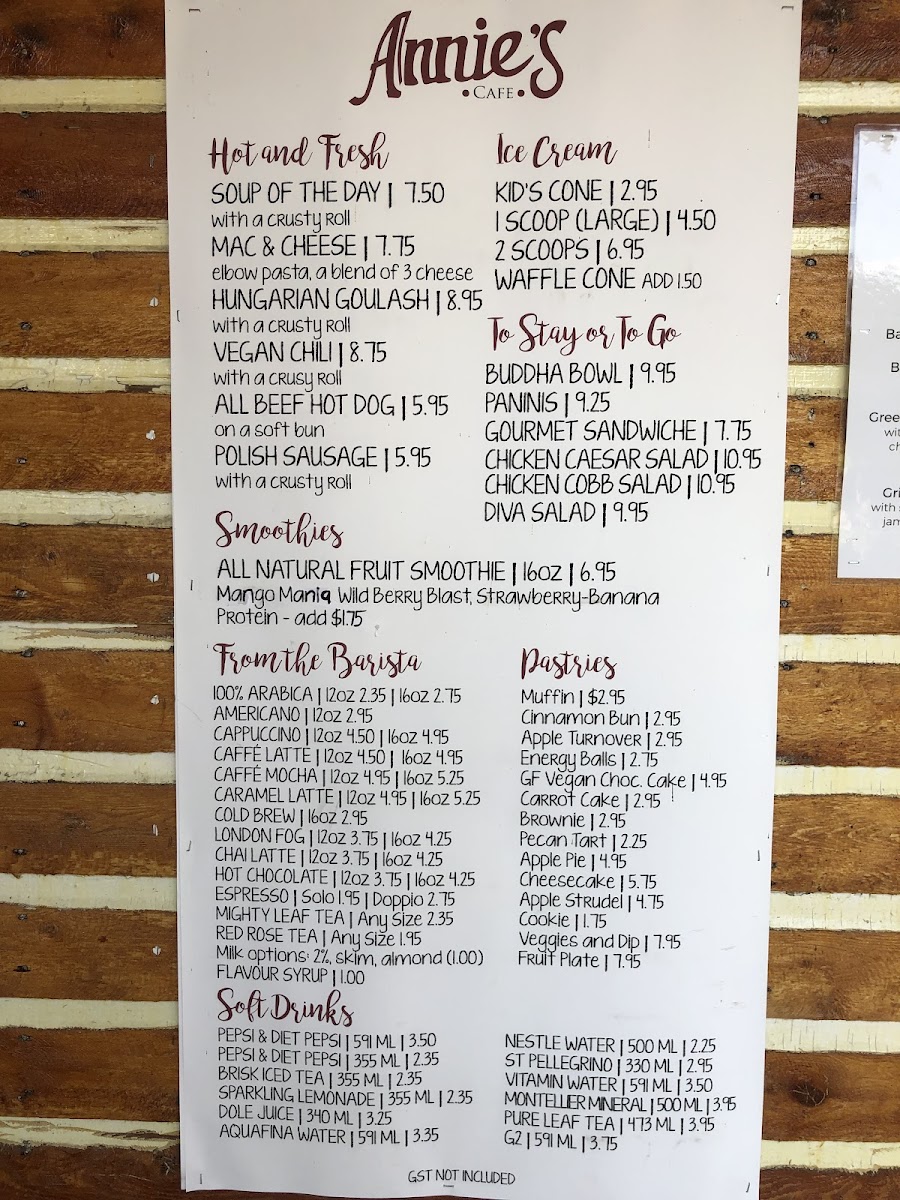 Annie's
•CAFE•
Hot and Fresh
SOUP OF THE DAY | 7.50
with a crusty Roll
MAC & CHEESE | 7.75
elbow pasta, a blend of 3 cheese
HUNGARIAN GOULASH | 8.95
with a crusty Roll
VEGAN CHILI | 8.75
with a crusy Roll
ALL BEEF HOT DOG | 5.95
on a soft bun
POLISH SAUSAGE | 5.95
with a crusty Roll
Ice Cream
KID'S CONE | 2.95
1 SCOOP (LARGE) | 4.50
2 SCOOPS | 6.95
WAFFLE CONE ADD 1.50
To Stay or To Go
BUDDHA BOWL | 9.95
PANINIS | 9.25
GOURMET SANDWICHE | 7.75
CHICKEN CAESAR SALAD | 10.95
CHICKEN COBB SALAD | 10.95
DIVA SALAD | 9.95
Smoothies
ALL NATURAL FRUIT SMOOTHIE | 16oz | 6.95
Mango Mania, Wild Berry Blast, Strawberry-Banana
Protein - add $1.75
From the Barista
100% ARABICA | 12oz 2.35 | 16oz 2.75
AMERICANO | 12oz 2.95
CAPPUCCINO | 12oz 4.50 | 16oz 4.95
CAFFÉ LATTE | 12oz 4.50 | 16oz 4.95
CAFFÉ MOCHA | 12oz 4.95 | 16oz 5.25
CARAMEL LATTE | 12oz 4.95 | 16oz 5.25
COLD BREW | 16oz 2.95
LONDON FOG | 12oz 3.75 | 16oz 4.25
CHAI LATTE | 12oz 3.75 | 16oz 4.25
HOT CHOCOLATE | 12oz 3.75 | 16oz 4.25
ESPRESSO | Solo 1.95 | Doppio 2.75
MIGHTY LEAF TEA | Any Size 2.35
RED ROSE TEA | Any Size 1.95
Milk options: 2%, skim, almond (1.00)
FLAVOUR SYRUP | 1.00
Pastries
Muffin | $2.95
Cinnamon Bun | 2.95
Apple Turnover | 2.95
Energy Balls | 2.75
GF Vegan Choc. Cake | 4.95
Carrot Cake | 2.95
Brownie | 2.95
Pecan Tart | 2.25
Apple Pie | 4.95
Cheesecake | 5.75
Apple Strudel | 4.75
Cookie | 1.75
Veggies and Dip | 7.95
Fruit Plate | 7.95
Soft Drinks
PEPSI & DIET PEPSI | 591 ML | 3.50
PEPSI & DIET PEPSI | 355 ML | 2.35
BRISK ICED TEA | 355 ML | 2.35
SPARKLING LEMONADE | 355 ML | 2.35
DOLE JUICE | 340 ML | 3.25
AQUAFINA WATER | 591 ML | 3.35
NESTLE WATER | 500 ML | 2.25
ST PELLEGRINO | 330 ML | 2.95
VITAMIN WATER | 591 ML | 3.50
MONTELLIER MINERAL | 500 ML | 3.95
PURE LEAF TEA | 473 ML | 3.95
G2 | 591 ML | 3.75
GST NOT INCLUDED